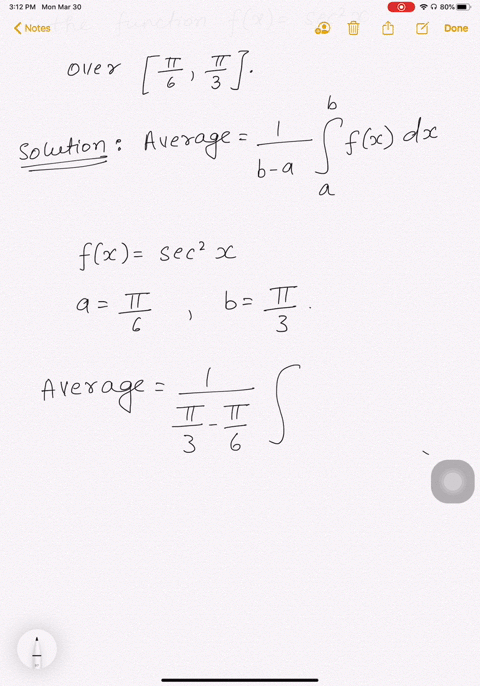 3:12 PM Mon Mar 30 80%
the function f(x) = sec² x
Notes Done
over [π/6, π/3].
Solution: Average = 1/(b-a) ∫_a^b f(x) dx
f(x) = sec² x
a = π/6 , b = π/3.
Average = 1/(π/3 - π/6) ∫